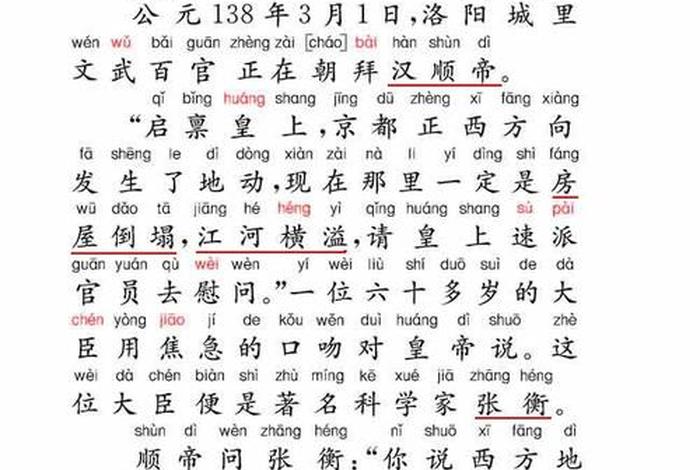 公元138年3月1日，洛阳城里
wén wǔ bǎi guān zhèng zài [cháo] bài hàn shùn dì
文武百官正在朝拜汉顺帝。
qǐ bǐng huáng shang jīng dū zhèng xī fāng xiàng
“启禀皇上，京都正西方向
fā shēng le dì dòng xiàn zài nà li yí dìng shì fáng
发生了地动，现在那里一定是房
wū dǎo tā jiāng hé héng yì qǐng huáng shang sù pài
屋倒塌，江河横溢，请皇上速派
guān yuán qù wèi wèn yí wèi liù shí duō suì de dà
官员去慰问。”一位六十多岁的大
chén yòng jiāo jí de kǒu wěn duì huáng dì shuō zhè
臣用焦急的口吻对皇帝说。这
wèi dà chén biàn shì zhù míng kē xué jiā zhāng héng
位大臣便是著名科学家张衡。
shùn dì wèn zhāng héng nǐ shuō xī fāng dì
顺帝问张衡：“你说西方地